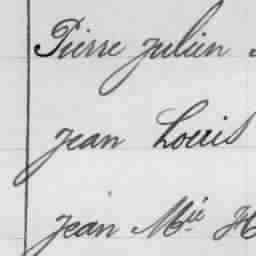 Pierre Julien
Jean Louis
Jean Mie